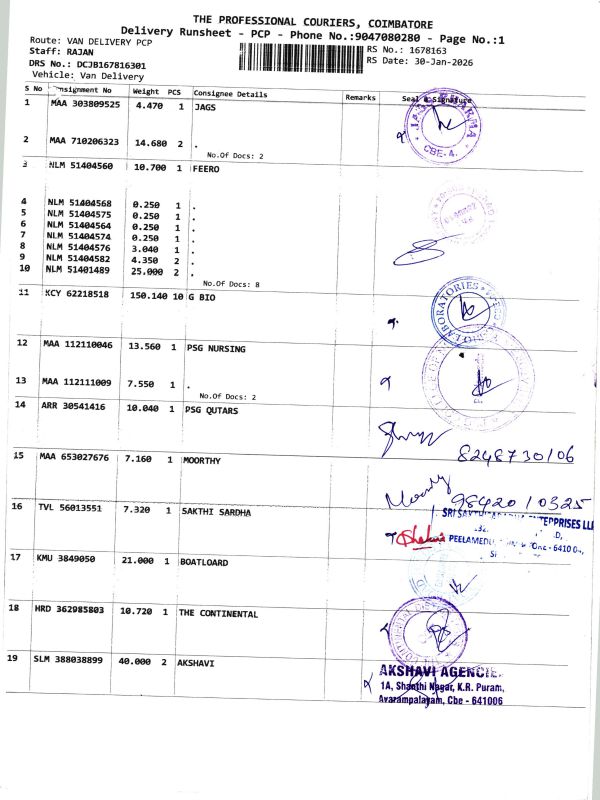 THE PROFESSIONAL COURIERS, COIMBATORE
Delivery Runsheet - PCP - Phone No.:9047080280 - Page No.:1
Route: VAN DELIVERY PCP
RS No.: 1678163
Staff: RAJAN
RS Date: 30-Jan-2026
DRS No.: DCJB167816301
Vehicle: Van Delivery
S No Consignment No Weight PCS Consignee Details Remarks Seal & Signature
1 MAA 303809525 4.470 1 JAGS
JAGS PHARMA
CBE-4.
2 MAA 710206323 14.680 2 .
No.Of Docs: 2
3 NLM 51404560 10.700 1 FEERO
4 NLM 51404568 0.250 1 .
5 NLM 51404575 0.250 1 .
6 NLM 51404564 0.250 1 .
7 NLM 51404574 0.250 1 .
8 NLM 51404576 3.040 1 .
9 NLM 51404582 4.350 2 .
10 NLM 51401489 25.000 2 .
No.Of Docs: 8
11 KCY 62218518 150.140 10 G BIO
LABORATORIES
12 MAA 112110046 13.560 1 PSG NURSING
13 MAA 112111009 7.550 1 .
No.Of Docs: 2
14 ARR 30541416 10.040 1 PSG QUTARS
8248730106
15 MAA 653027676 7.160 1 MOORTHY
Moorthy
9842010325
16 TVL 56013551 7.320 1 SAKTHI SARDHA
ENTERPRISES LLP
PEELAMEDU
17 KMU 3849050 21.000 1 BOATLOARD
18 HRD 362985803 10.720 1 THE CONTINENTAL
19 SLM 388038899 40.000 2 AKSHAVI
AKSHAVI AGENCIE
1A, Shanthi Nagar, K.R. Puram,
Avarampalayam, Cbe - 641006